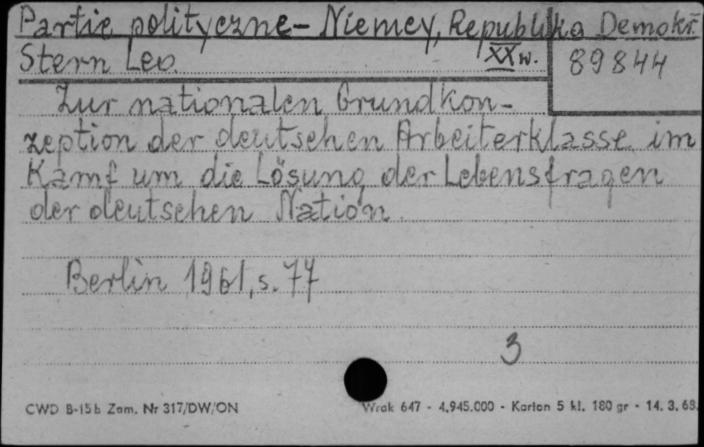 Partie polityczne - Niemcy, Republika Demokr.
Stern Leo. XX w. 89844
Zur nationalen Grundkon-
zeption der deutschen Arbeiterklasse im
Kamf um die Lösung der Lebensfragen
der deutschen Nation.
Berlin 1961, s. 77
3
CWD B-15b Zam. Nr 317/DW/ON Wrak 647 - 4.945.000 - Karton 5 kl. 180 gr - 14. 3. 68.